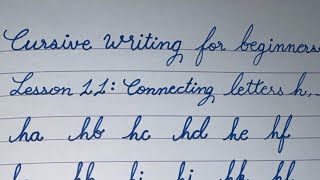 Cursive writing for beginners
Lesson 11: Connecting letters h,
ha hb hc hd he hf
hh hi hj hk hl